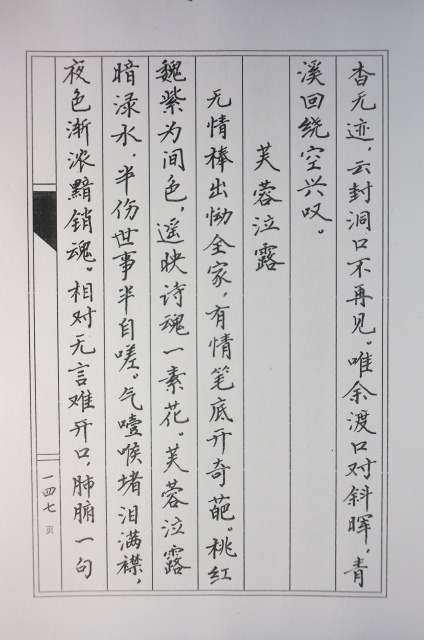 杳无迹，云封洞口不再见。唯余渡口对斜晖，青
溪回绕空兴叹。
芙蓉泣露
无情棒出恸全家，有情笔底开奇葩。桃红
魏紫为间色，遥映诗魂一素花。芙蓉泣露
暗渌水，半伤世事半自嗟。气噎喉堵泪满襟，
夜色渐浓黯销魂。相对无言难开口，肺腑一句
一四七页